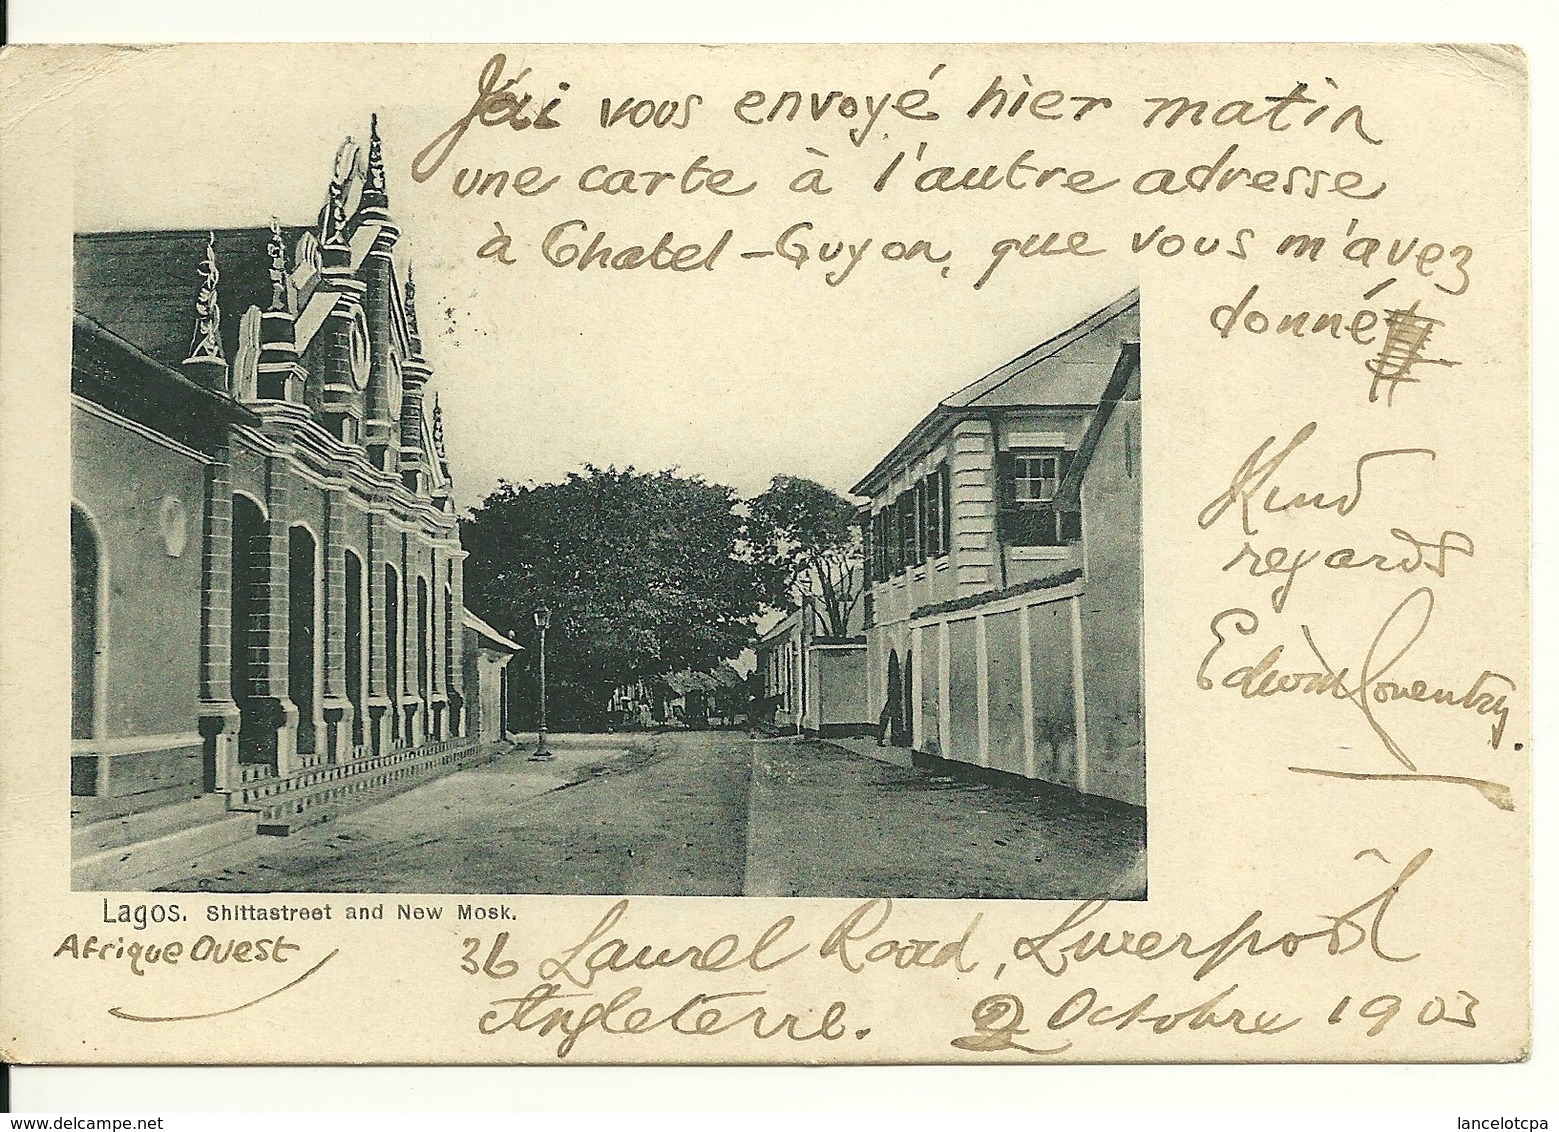 J'ai vous envoyé hier matin
une carte à l'autre adresse
à Chatel-Guyon, que vous m'avez
donné
Kind
regards
Edwin Coventry.
Lagos. Shittastreet and New Mosk.
Afrique Ouest
36 Laurel Road, Liverpool
Angleterre. 2 Octobre 1903
www.delcampe.net
lancelotcpa